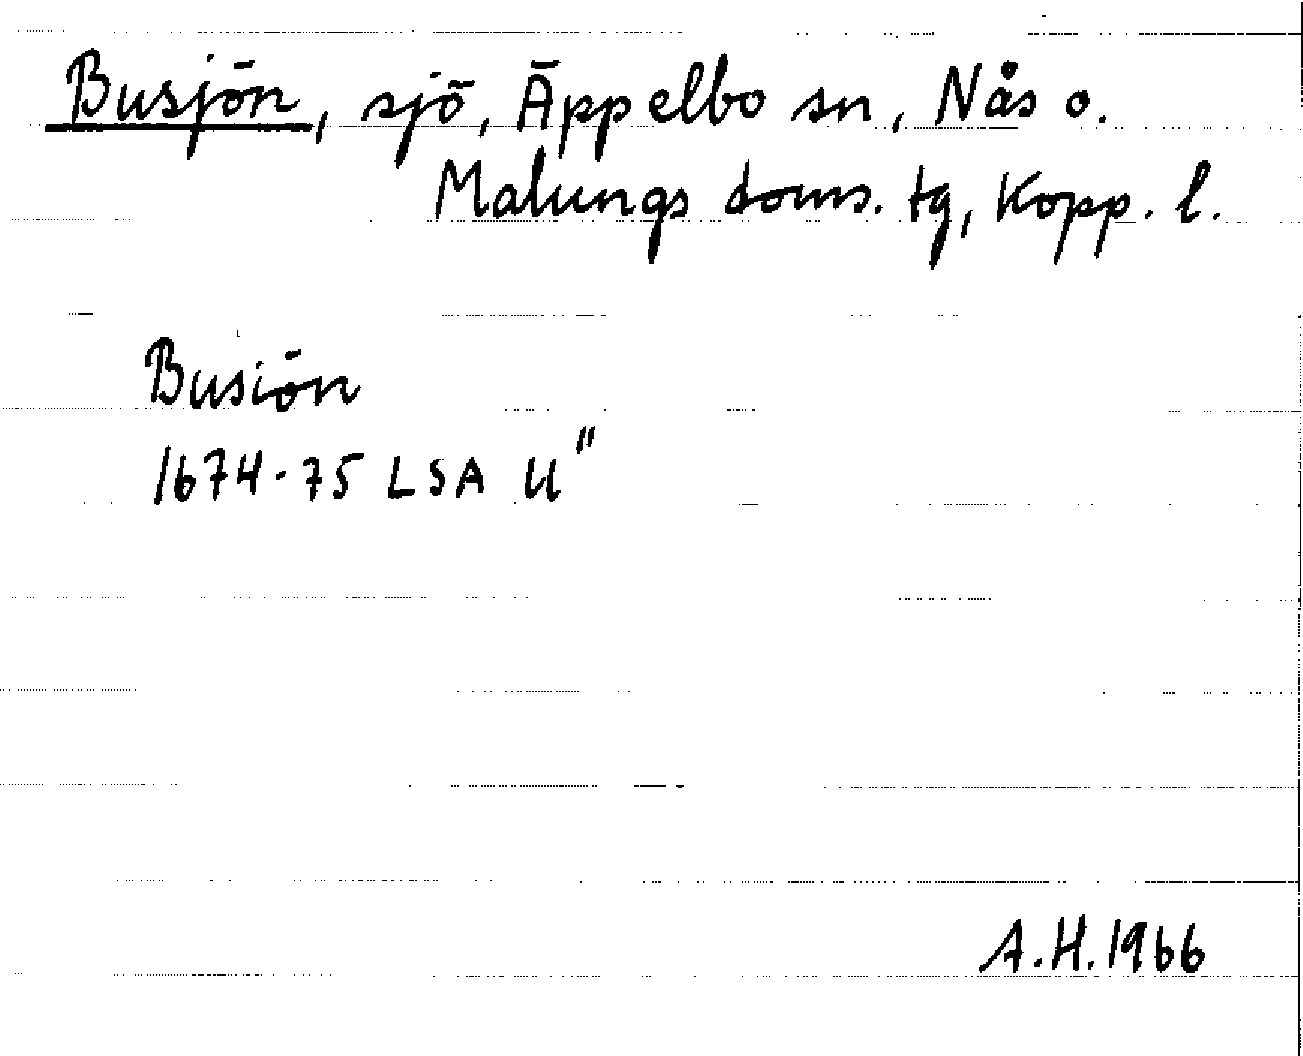 Busjön, sjö, Äppelbo sn, Nås o.
Malungs doms. tg, Kopp. l.
Busiön
1674-75 LSA U"
A.H. 1966